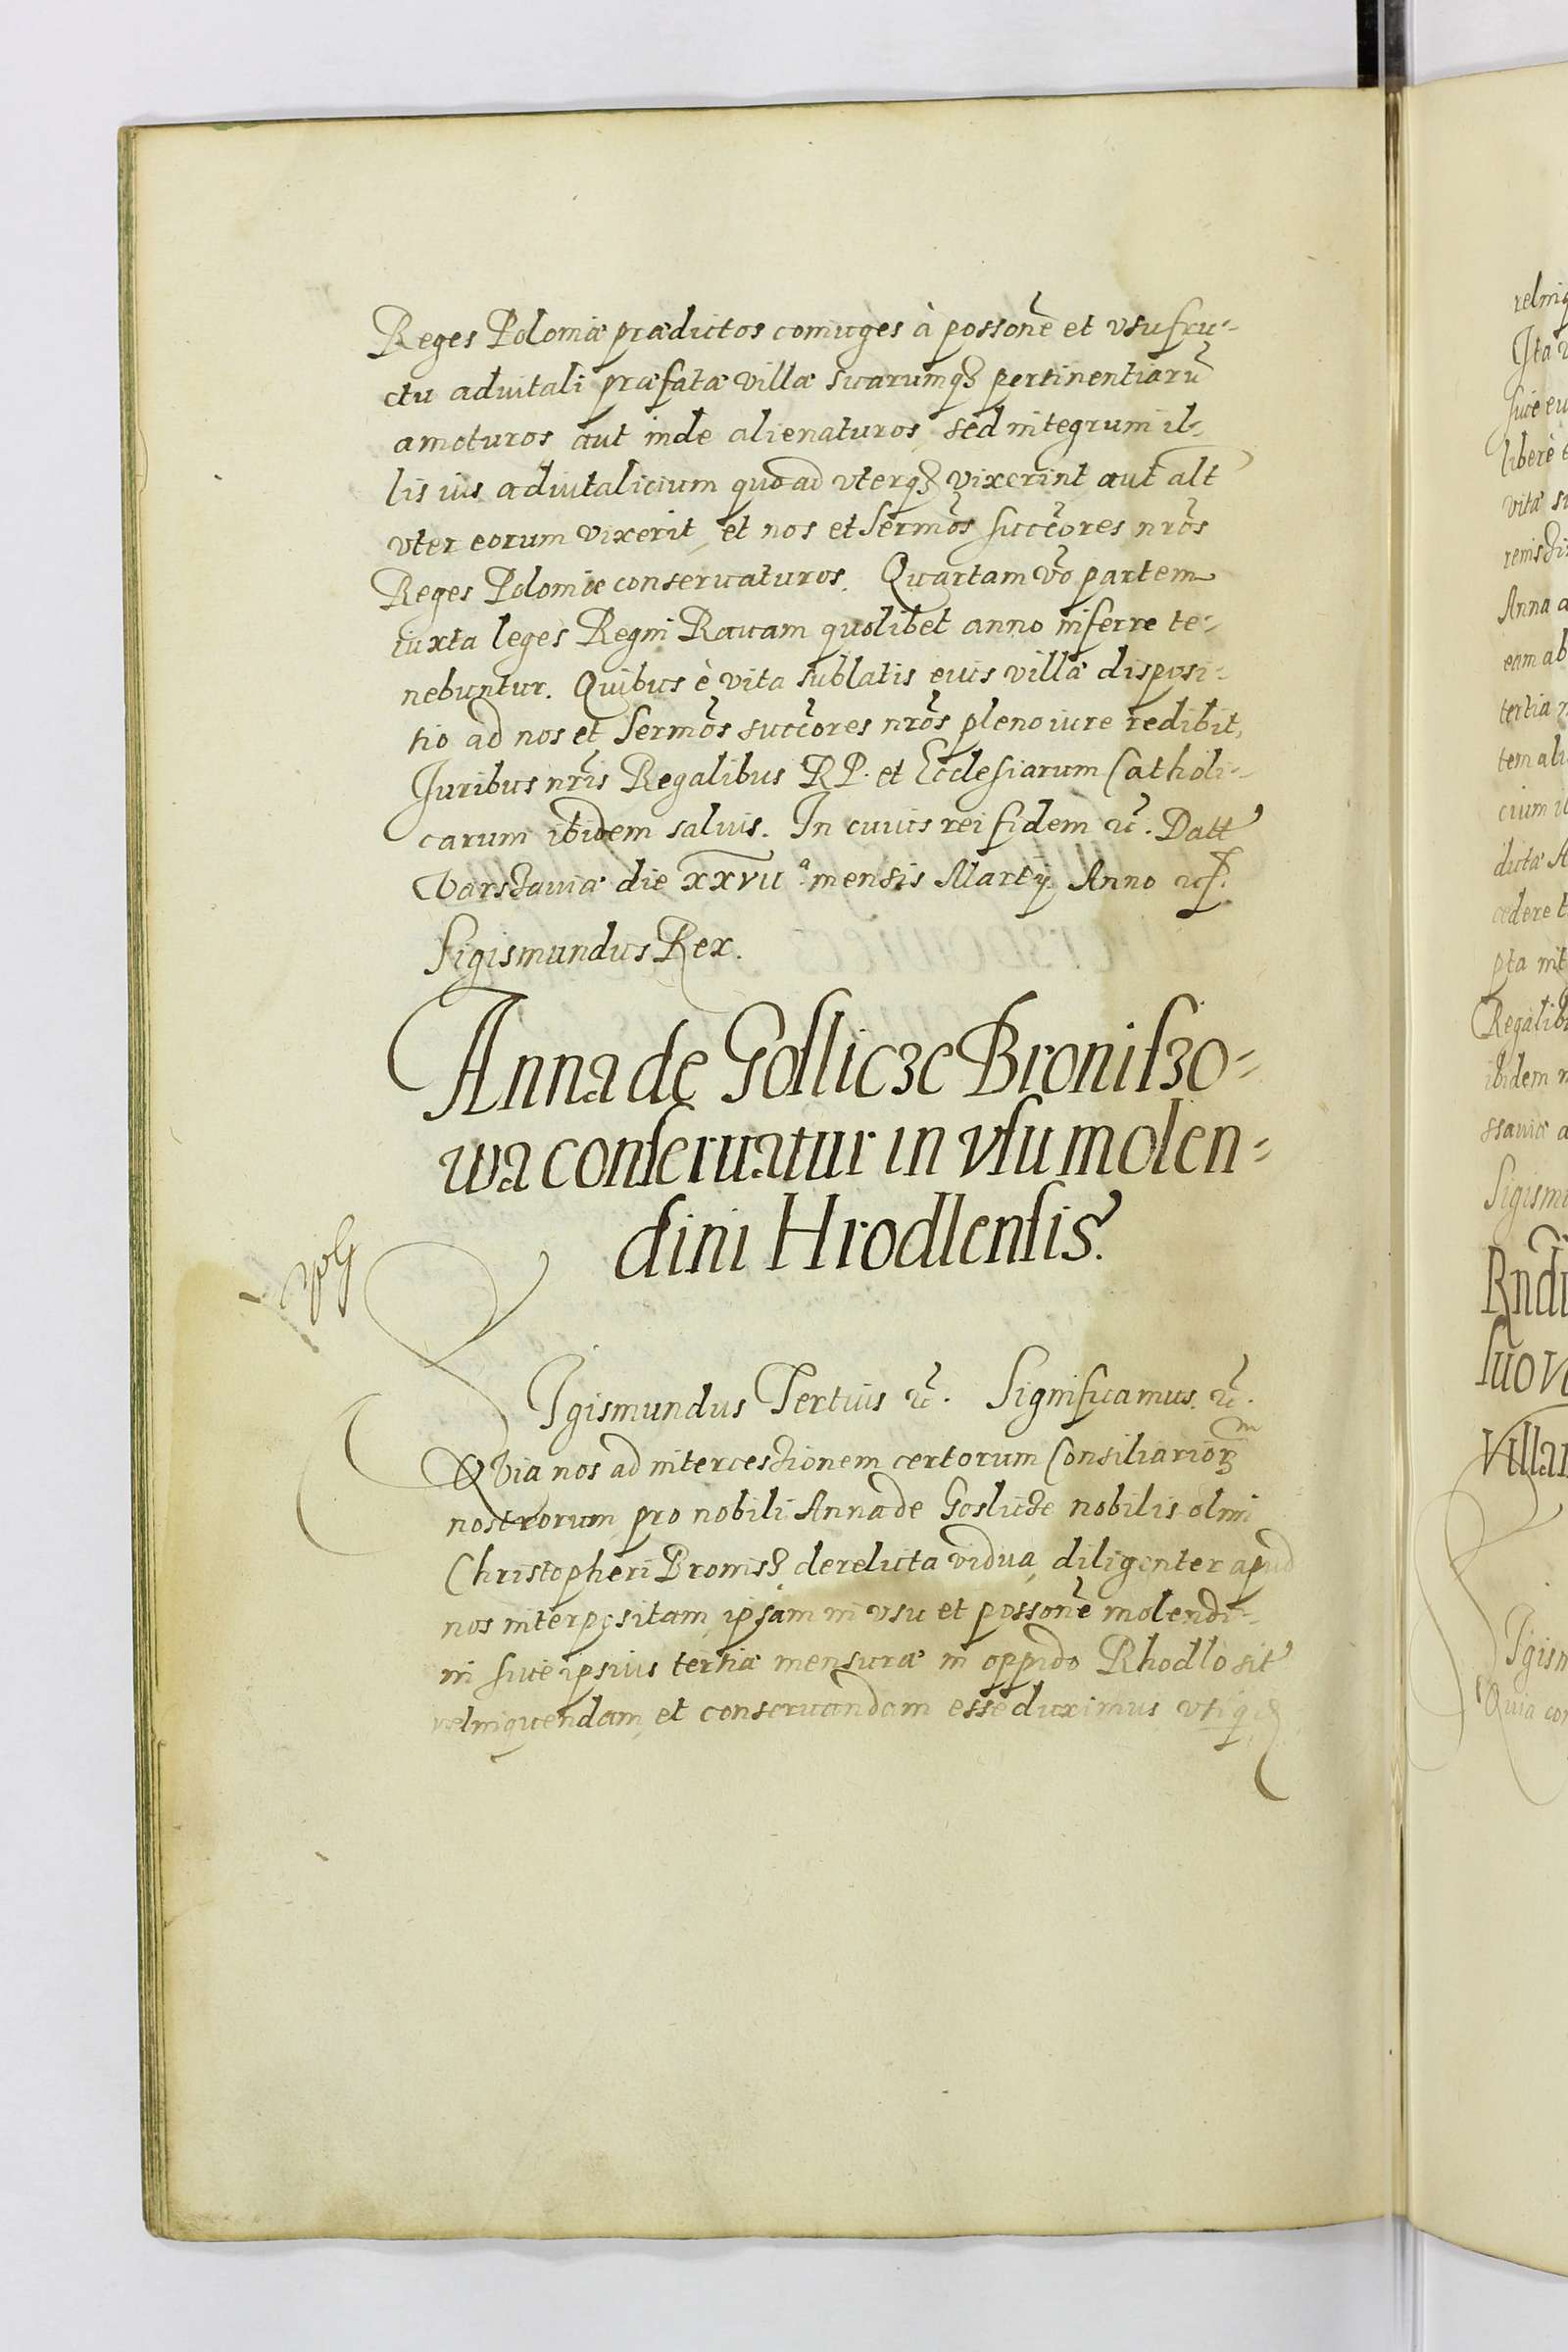 Reges Poloniæ prædictos coniuges à possonẽ et vsufru-
ctu aduitali præfatæ villæ suarumq3 pertinentiarũ
amoturos aut inde alienaturos, sed integrum il-
lis ius aduitalicium quoad vterq3 vixerint aut alt
vter eorum vixerit, et nos et Sermõs succõres nrõs
Reges Poloniæ conseruaturos. Quartam võ partem
iuxta leges Regni Rauam quolibet anno inferre te-
nebuntur. Quibus è vita sublatis eius villæ disposi-
tio ad nos et Sermõs succõres nrõs pleno iure redibit,
Juribus nrĩs Regalibus RP. et Ecclesiarum Catholi-
carum ibidem saluis. In cuius rei fidem &c̃. Datt
Varssauiæ die xxvii a mensis Martij Anno &c.
Sigismundus Rex.
Anna de Goslicze Broniszo-
wa conseruatur in vsu molen-
dini Hrodlensis.
Sigismundus Tertius &c̃. Significamus &c̃.
Quia nos ad intercessionem certorum Consiliarior
nostrorum pro nobili Anna de Goslicze nobilis olim
Christopheri Bronis3 derelicta vidua, diligenter apud
nos interpositam, ipsam in vsu et possonẽ molendi-
ni siue ipsius tertiæ mensuræ in oppido Rhodlo sit
relinquendam, et conseruandam esse duximus vti q3
relinq
Ita
siue
liberè
vita
Anna a
eam ab
tertia
tem ali
cium
dicta A
cedere
pta int
Regalib
ibidem
ssauiæ a
Sigismu
Rndi
suo v
villar
Sigism
Quia con